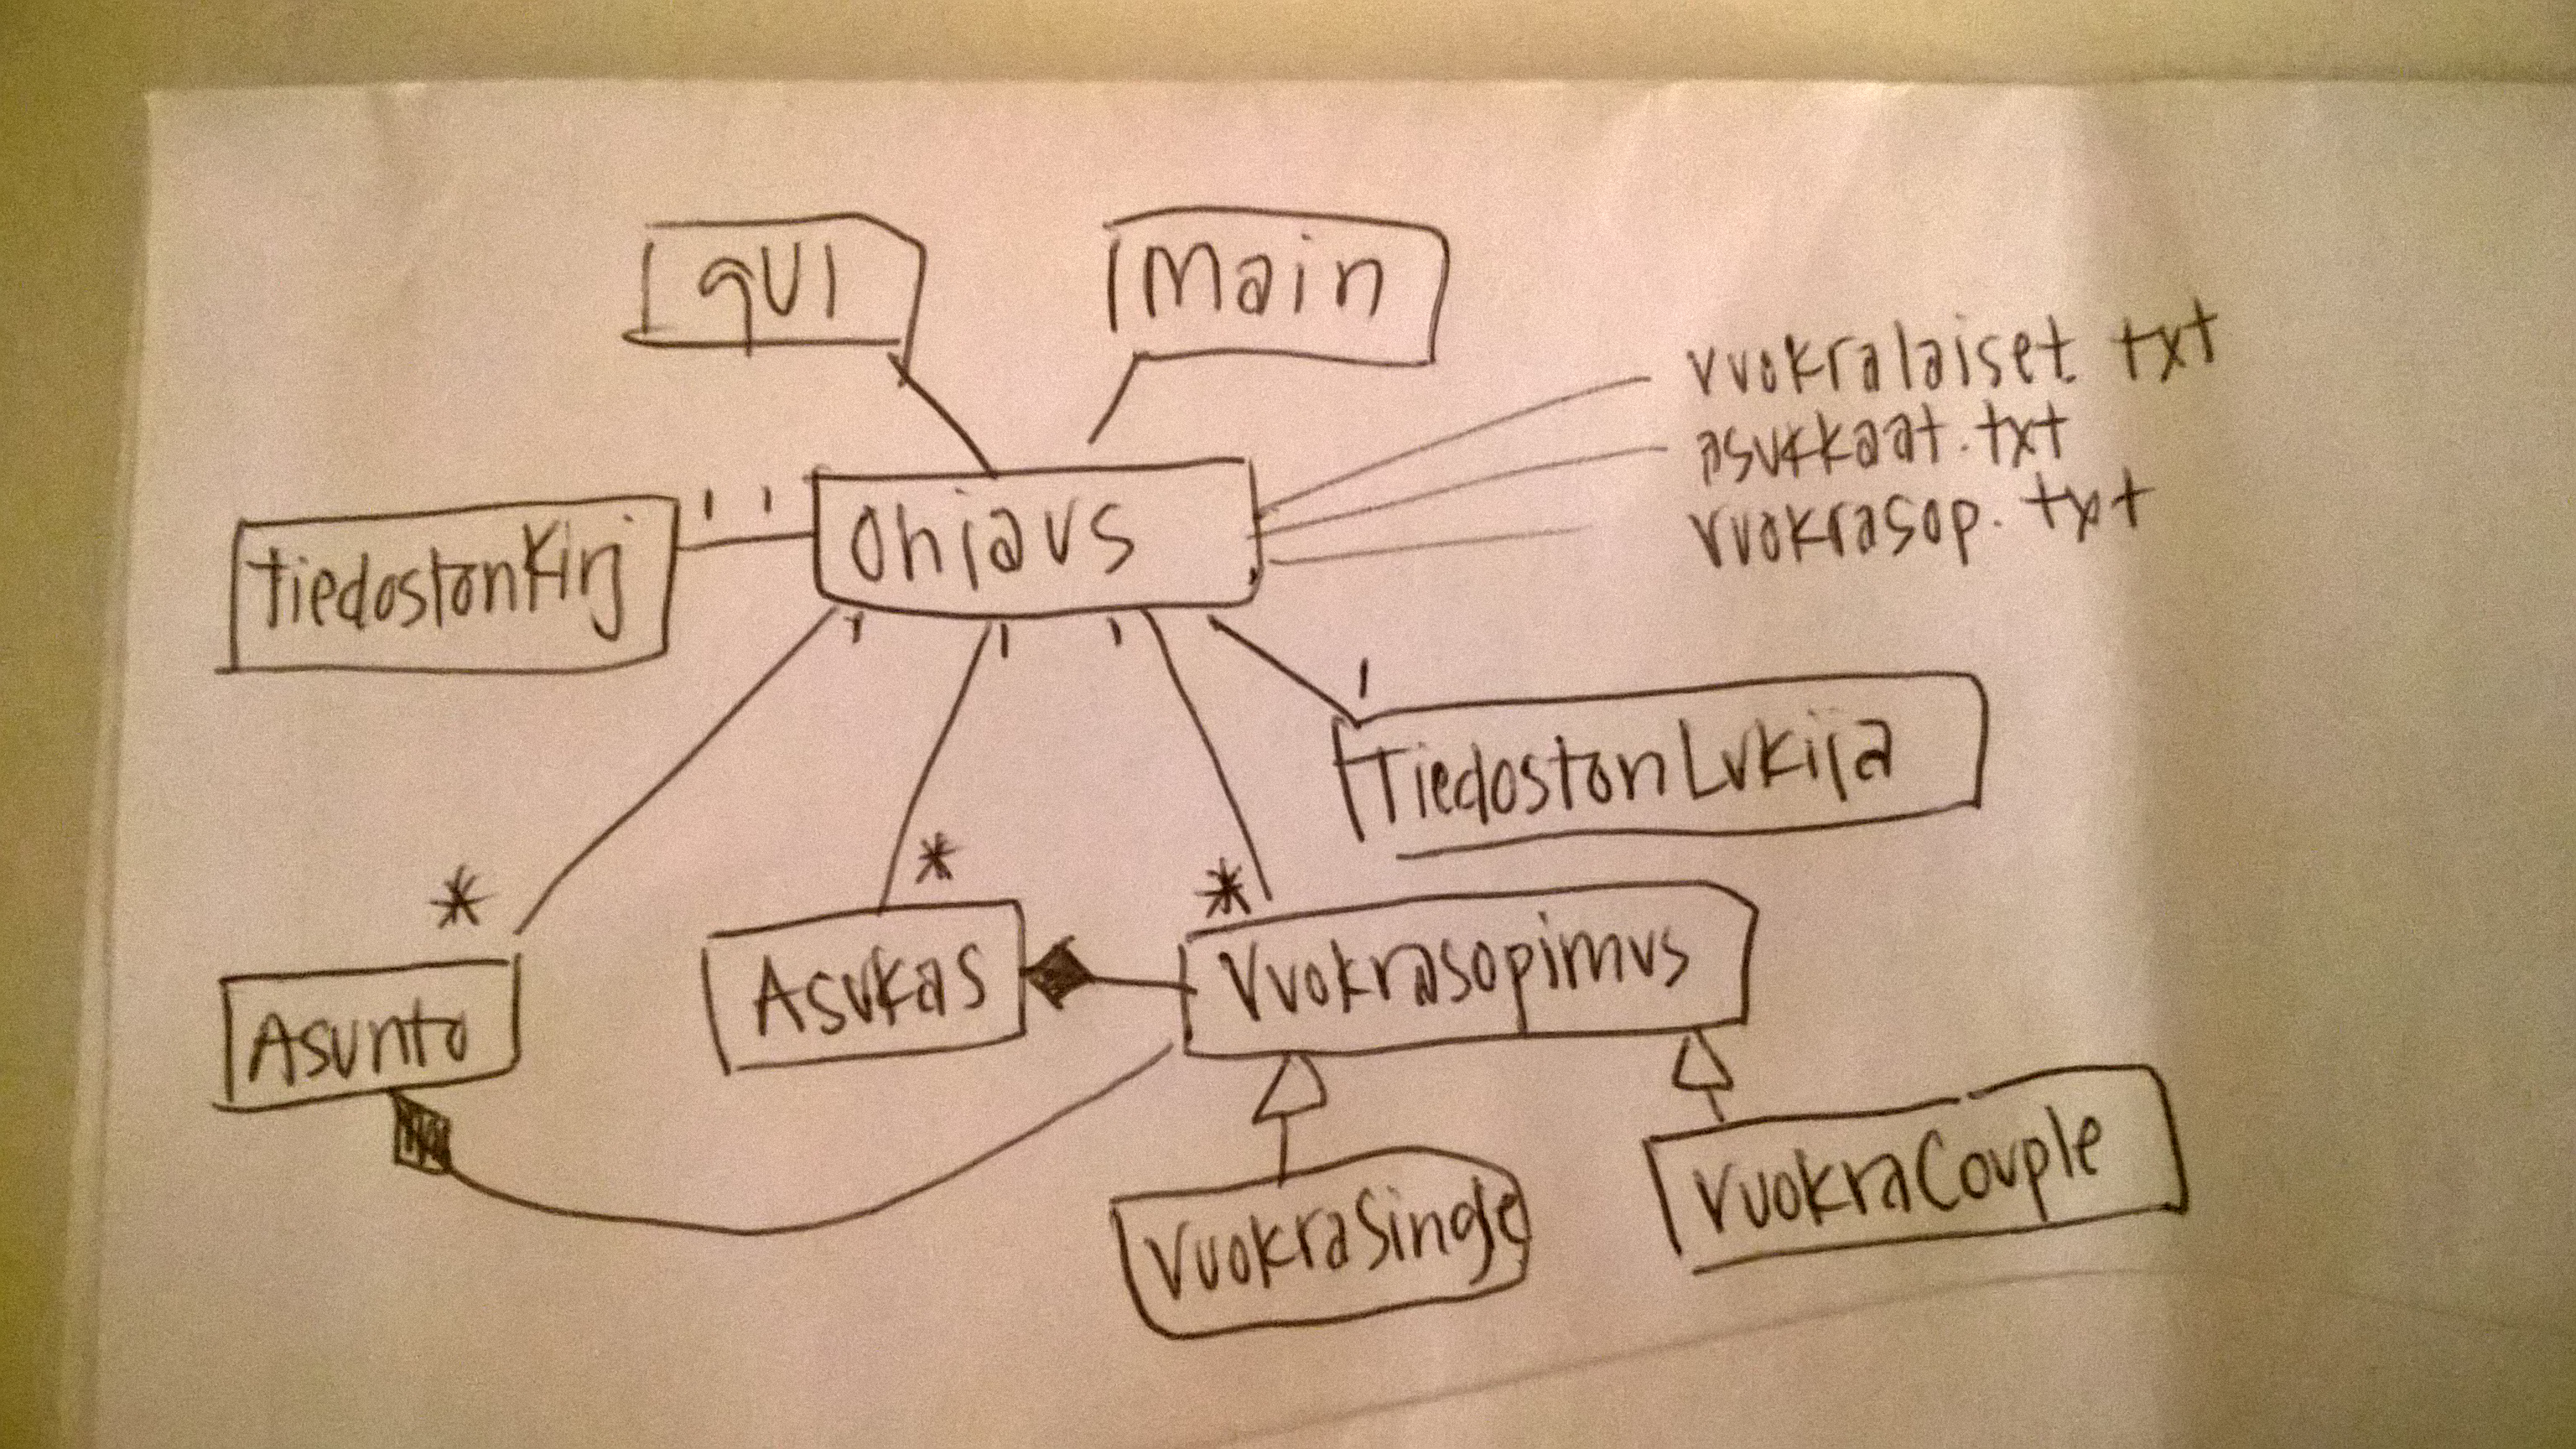 gUI
Main
vuokralaiset. txt
asukkaat. txt
vuokrasop. txt
1 1
Ohjaus
tiedostonKirj
1 1 1
1
TiedostonLukija
* * *
Asunto
Asukas
Vuokrasopimus
VuokraSingle
VuokraCouple